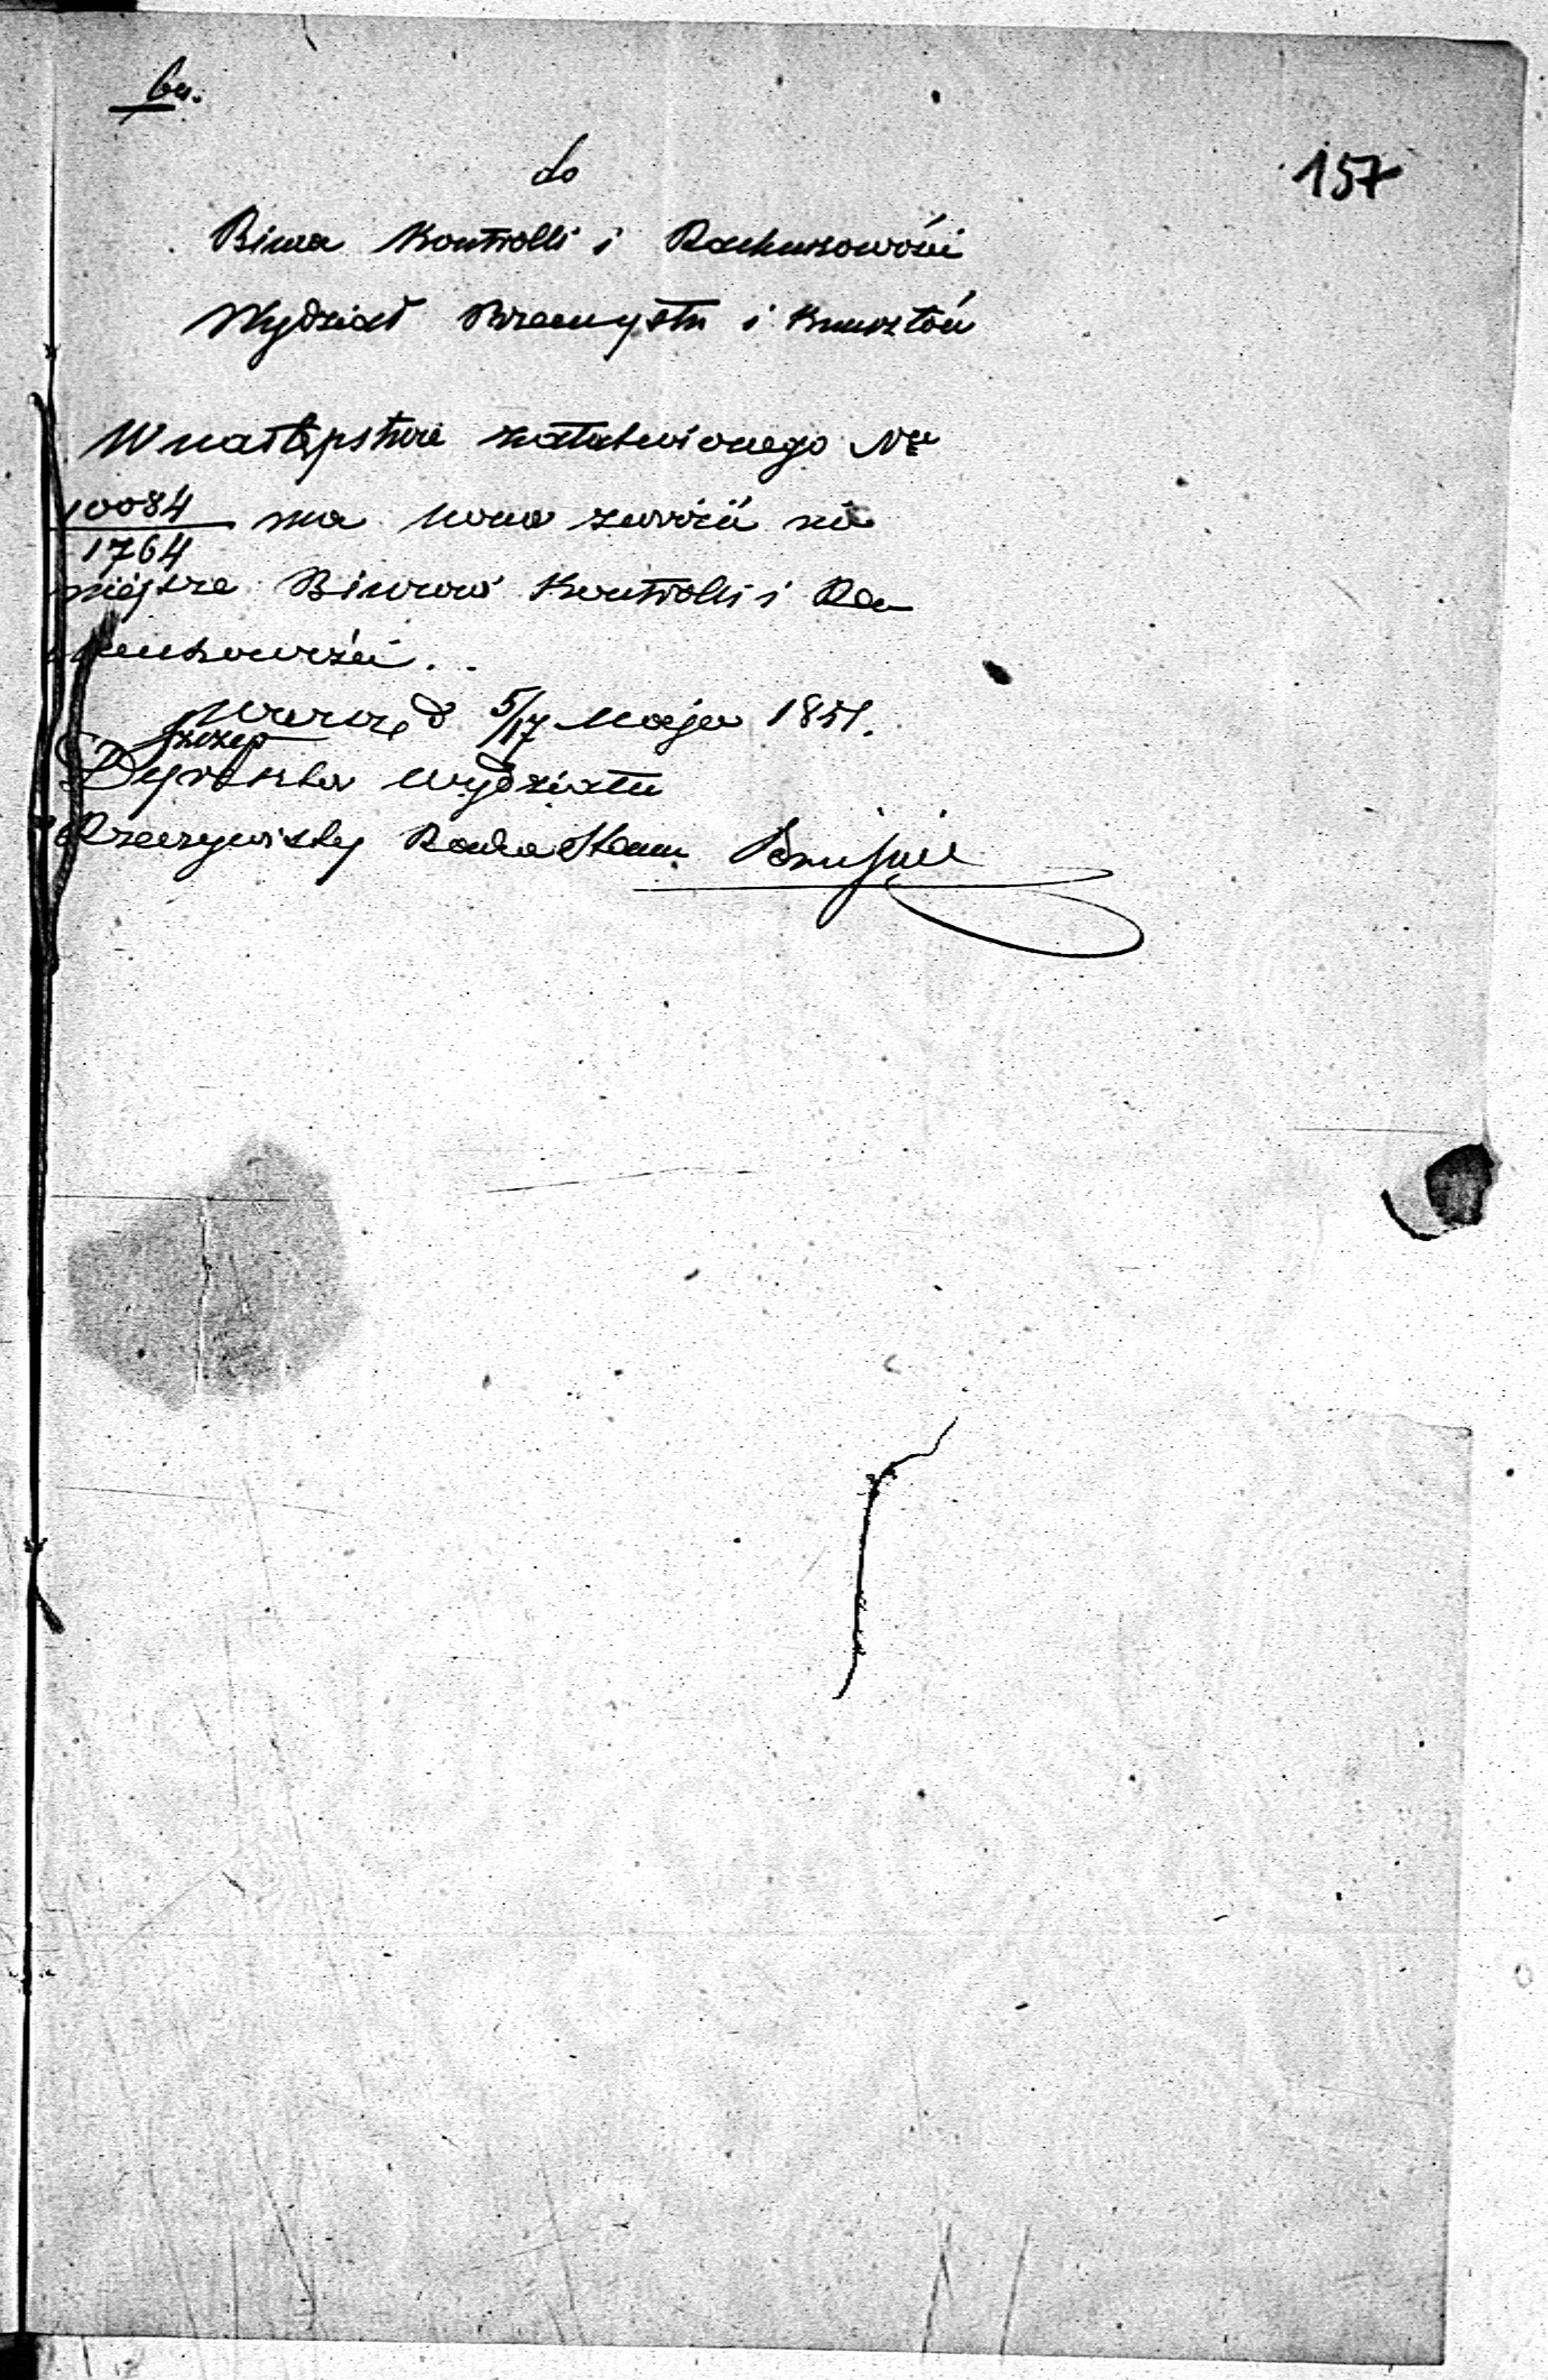 157
do
Biura Kontrolli i Rachunkowości
Wydział Przemysłu i Kunsztów
W następstwie załatwionego Nru
10084
1764
ma honor zwrócić ni
niejsze Biurowi Kontrolli i Ra
chunkowości.
d 5/17 Maja 1851.
Dyrektor Wydziału
Rzeczywisty Radca Stanu